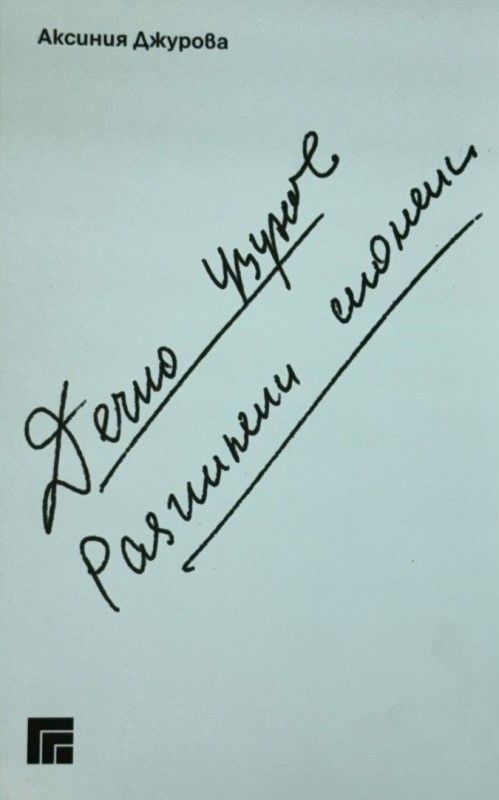 Аксиния Джурова
Дечко Узунов
Разчитени спомени